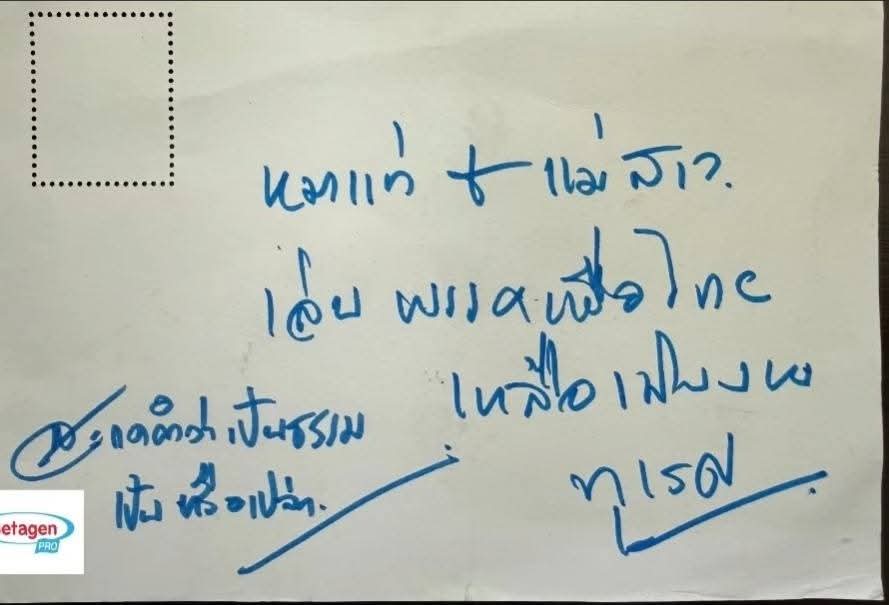 หมาแก่ + แม่สาว.
เล่น พรรคเพื่อไทย
เหลือเพียง
ทุเรศ
สะกดคำว่าเป็นธรรม
เป็น หรือเปล่า.
etagen
PRO